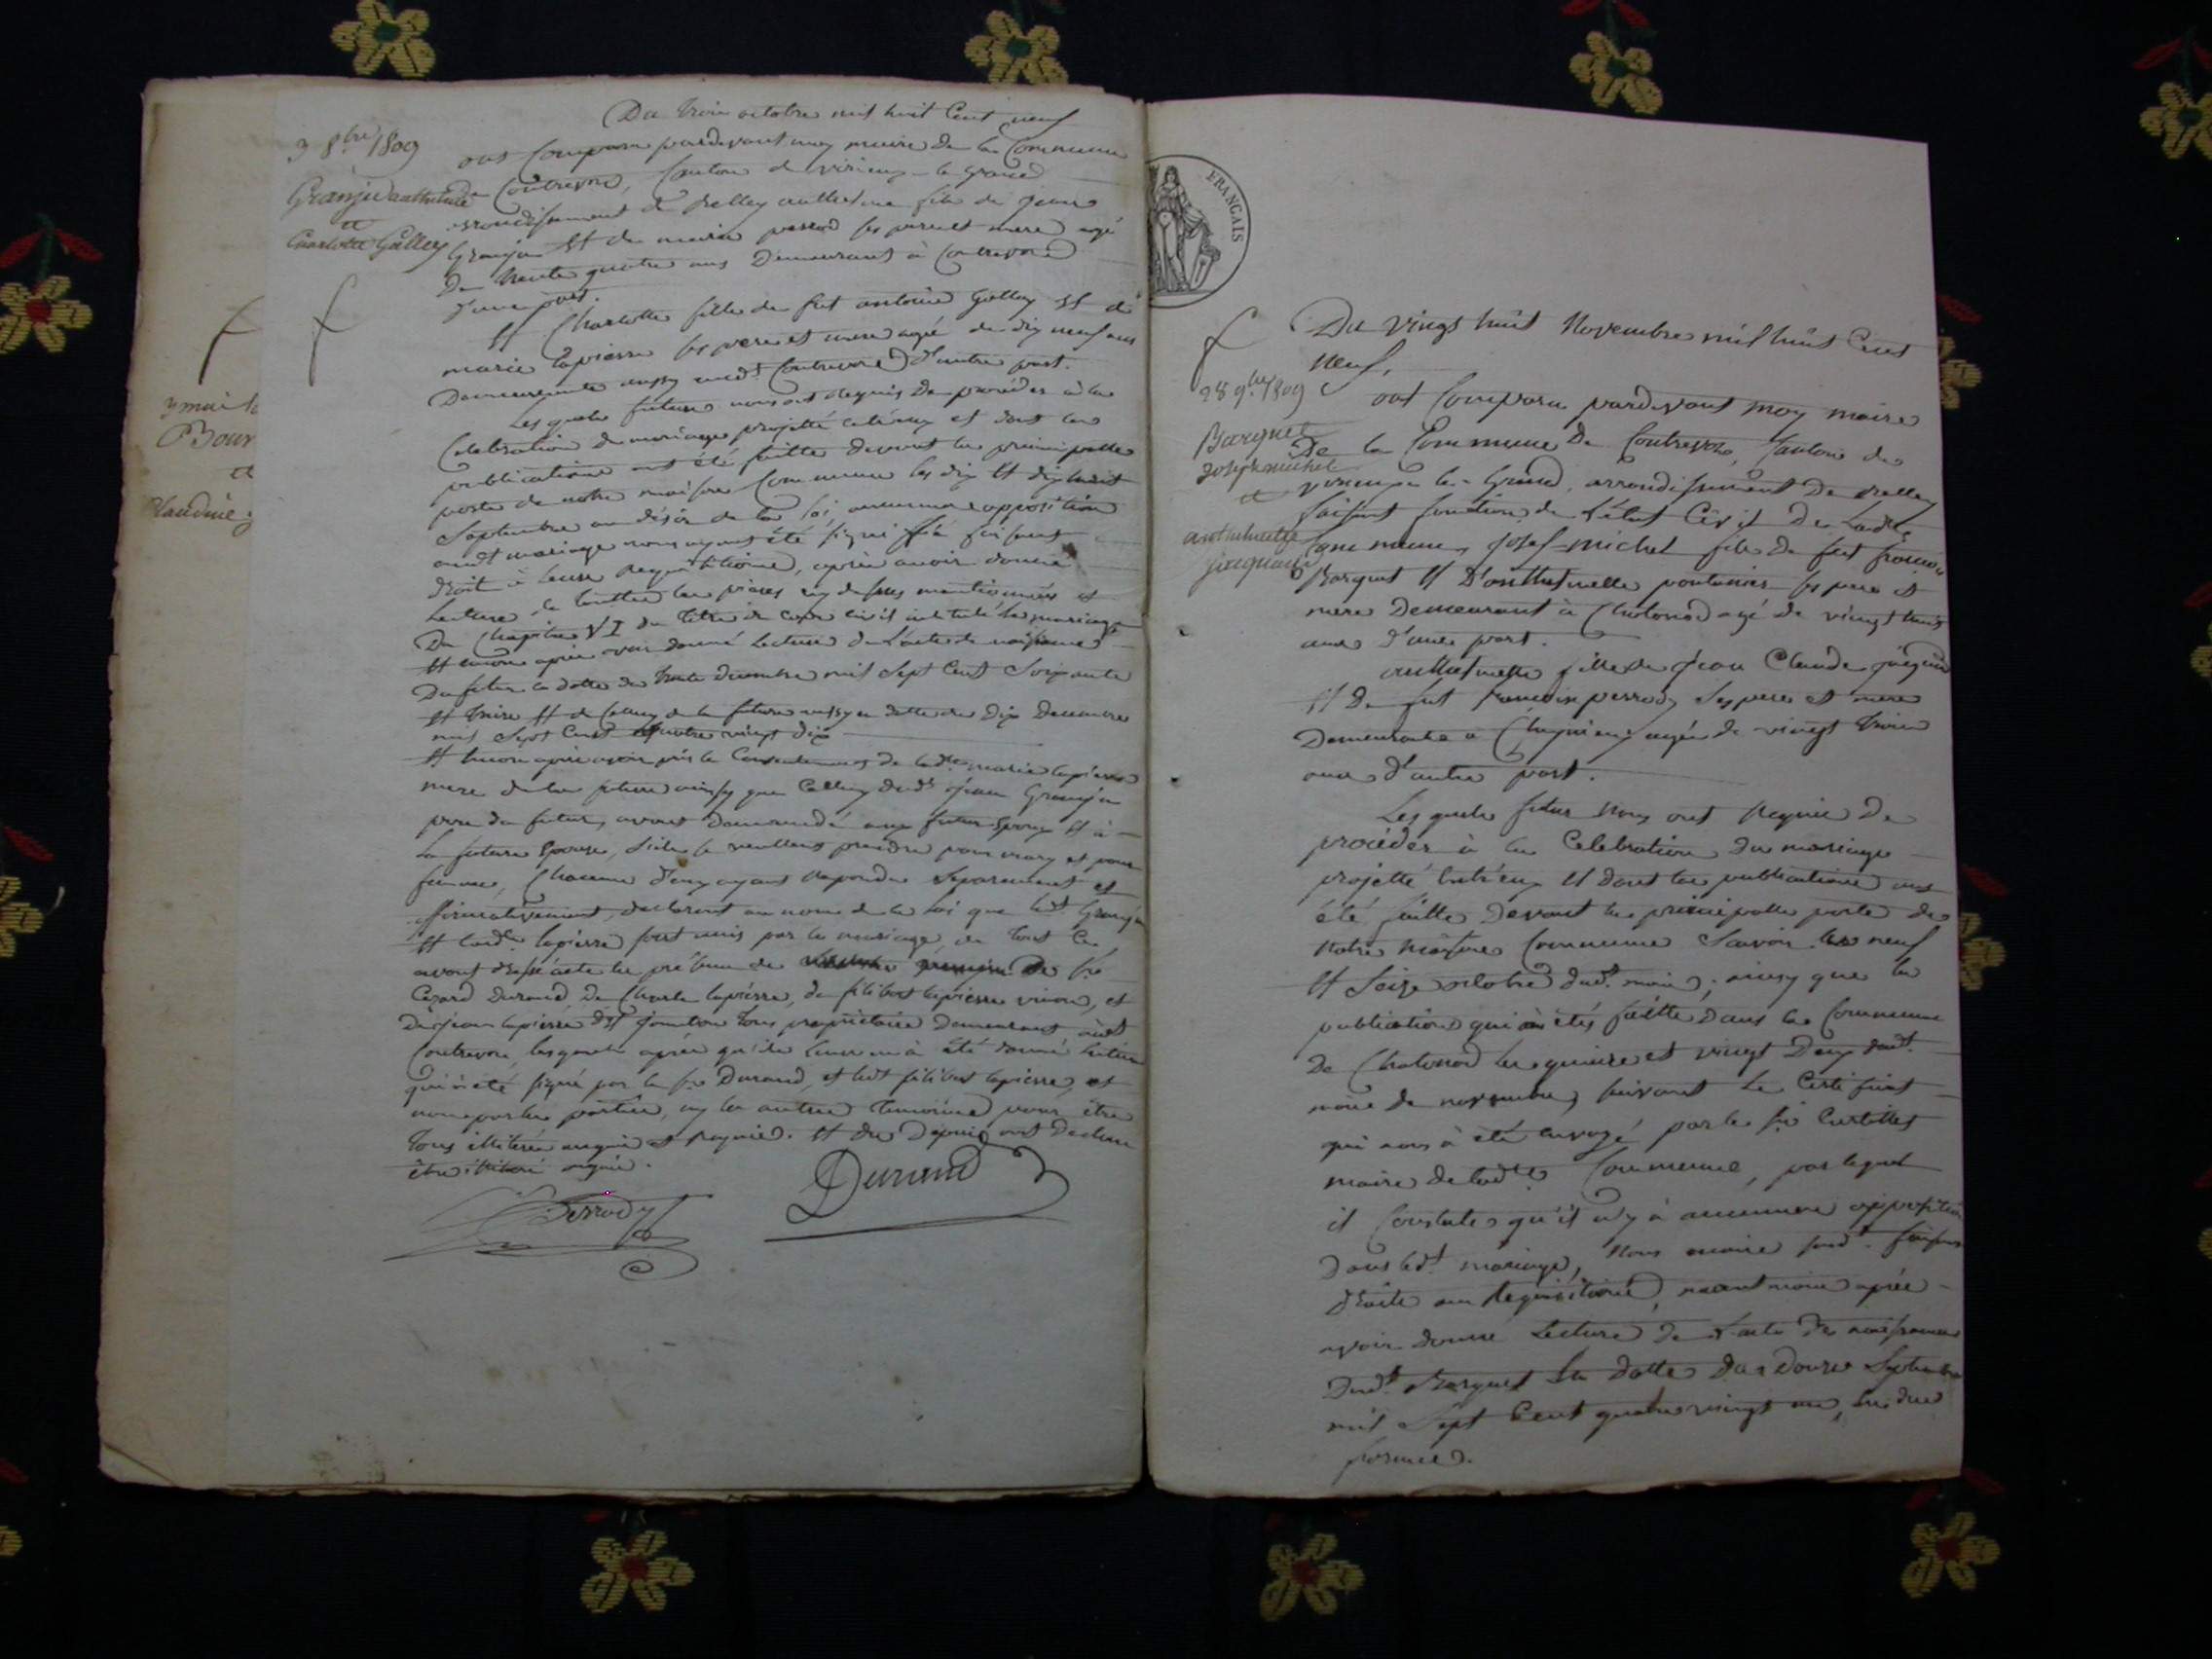 Du trois octobre mil huit Cent neuf
3 8bre 1809
ont Comparu pardevant moy maire de la Commune
Granjean anthelme
et
Charlotte Gallay
de Contrevoz, Canton de virieux-le grand
arrondissement de Belley anthelme fils de jean
Granjean et de marie passod ses pere et mere agé
De trente quatre ans Demeurant à Contrevoz
d'une part.
Et Charlotte fille de fut antoine Gallay et de
marie lapierre ses pere et mere agée de dix neuf ans
Demeurante aussy audt Contrevoz d'autre part.
Lesquels futurs nous ont requis De proceder à la
Celebration du mariage projetté entr'eux et dont les
publications ont été faitte devant la principalle
porte de notre maison Commune les dix et dix huit
Septembre au désir de la loi aucunne opposition
audt mariage nous ayant été signiffié faisant
droit à leurs requisitions, après avoir donné
Lecture de touttes les pièces cy dessus mentionnées et
Du Chapitre VI du titre du Code Civil intitulé du mariage
Et encore après avoir donné Lecture de L'acte de naissance
Du futur en datte du trente decembre mil Sept Cent Soixante
Et treize et de Celluy de la future aussy en datte du Dix Decembre
mil Sept Cent quatre vingt dix
Et encore après avoir pris le Consentement de ladte marie lapierre
mere de la future ainsy que Celluy dudt jean Granjean
pere du futur, avons demandé aux futur Epoux et à
La future Epouse, s'ils se veullent prendre pour mary et pour
femme, Chacun d'eux ayant repondu Separement et
affirmativement, declarons au nom de la loi que ledt Granjean
Et ladte lapierre sont unis par le mariage, de tout Ce
avons dressé acte en presence de De Sr
Cezard Durand, De Charle lapierre, de filibert lapierre, et
De jean lapierre dit tous proprietaire demeurant audt
Contrevoz, lesquels après qu'il leur en à été donné lecture
qui à été signé par le Sr Durand, et ledt filibert lapierre, et
non par les parties, ny les autres temoins pour être
tous illiteré enquis et requis. Et du Depuis ont declaré
être illiteré enquis.
Perrody
Durand
y mai
Bour
et
Claudine
FRANCAIS
Du vingt huit Novembre mil huit Cent
neuf,
28 9bre 1809
ont Comparu pardevant moy maire
Barquet
joseph michel
et
anthelmette
jacquand
De la Commune De Contrevoz, Canton de
virieux le-Grand, arrondissement De Belley
faisant fonction de L'état Civil De Ladte
Commune, josef-michel fils de fut francois
Barquet Et D'anthelmette pontanier ses pere et
mere demeurant à Chatonod agé de vingt huit
ans d'une part.
anthelmette fille de jean Claude jacquand
Et De fut francoise perrody Ses pere et mere
Demeurante à Cheignieux agée de vingt trois
ans d'autre part.
Lesquels futur Nous ont requis De
procéder à la Celebration du mariage
projetté Entr'eux Et dont les publications ont
été faitte Devant la principalle porte de
notre maison Commune Savoir les neuf
Et Seize octobre dudt mois; ainsy que la
publication qui à étés faitte dans la Commune
De Chatonod les quinze et vingt Deux dudt
mois de novembre, suivant le Certificat
qui nous à été envoyé par le Sr Curtillet
maire de ladte Commune, par lequel
il Constate qu'il n'y à aucunne opposition
Dans ledt mariage, Nous maire susdt faisant
droit au requisitions, neantmoins après
avoir donné Lecture De L'acte De naissance
Dudt Barquet En datte Du Douze Septembre
mil Sept Cent quatre vingt un, en due
forme.